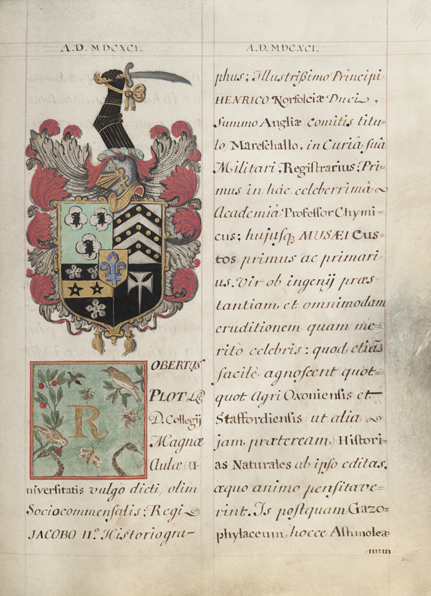 A.D. MDCXCI.
ROBERTUS
PLOT LL.
D. Collegij
Magnæ
Aulæ U-
niversitatis vulgo dicti, olim
Sociocommensalis; Regi
JACOBO IIº. Historiogra-
A.D. MDCXCI.
phus; Illustrißimo Principi
HENRICO Norfolciæ Duci,
Summo Angliæ comitis titu-
lo Mareschallo, in Curiâ suâ
Militari, Registrarius; Pri-
mus in hâc celeberrimâ
Academiâ Professor Chymi-
cus; hujusq; MUSÆI Cus-
tos primus ac primari-
us. Vir ob ingenij præs-
tantiam et omnimodam
eruditionem quam me-
rito celebris: quod etiam
facilè agnoscent quot-
quot Agri Oxoniensis et
Staffordiensis (ut alia
jam præteream) Histori-
as Naturales ab ipso editas,
æquo animo pensitave-
rint. Is postquam Gazo-
phylaceum hocce Ashmolea-
num